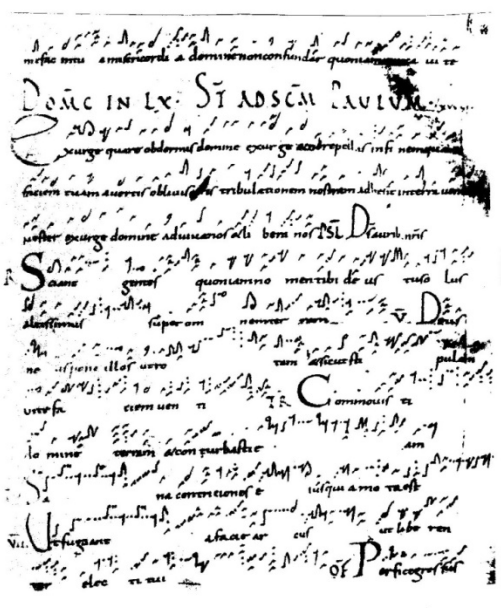 me fac in tua misericordia domine non confundar quoniam ui te
DOMC IN LX. ST AD SCM PAULUM
Exurge quare obdormis domine exur ge & ne repellas in finem
faciem tuam auertis tribulationem nostram adhesit in terra
noster exurge domine adiuua nos & li bera nos PSL Ds aurib. nris
R Sciant gentes quoniam no men tibi de us tu so lus
altissimus super om nem ter ram V Deus
me us pone illos ut ro tam & sicut sti pulam
ante fa ciem uen ti TR Commouis ti
do mine terram & con turbasti e am
Sa na contritiones e ius quia mo ta est
VII Ut fugiant a facie ar cus ut libe ren
tur elec ti tui OF Perfice gressus